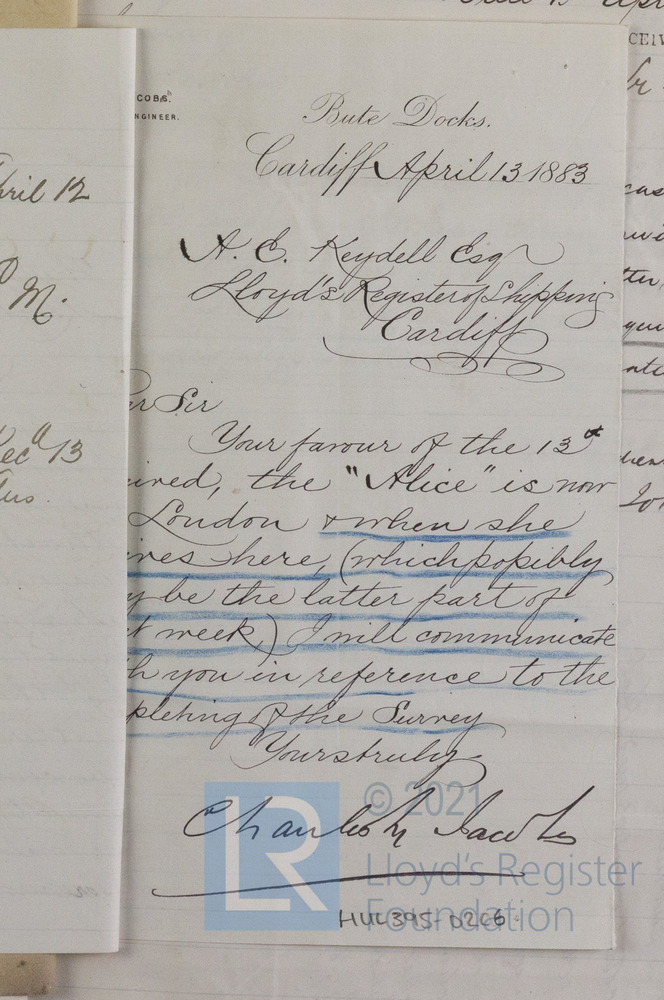 COBS.
NGINEER.
Bute Docks.
Cardiff April 13 1883
A. E. Keydell Esq
Lloyd's Register of Shipping
Cardiff
ar Sir
Your favour of the 13th
ived, the "Alice" is now
London & when she
ives here, (which possibly
y be the latter part of
t week,) I will communicate
h you in reference to the
pleting of the Survey
Yours truly
Charles h Jacobs
pril 12
M.
13
CEIV
LR
© 2021
Lloyd's Register
Foundation
HUL395-D206